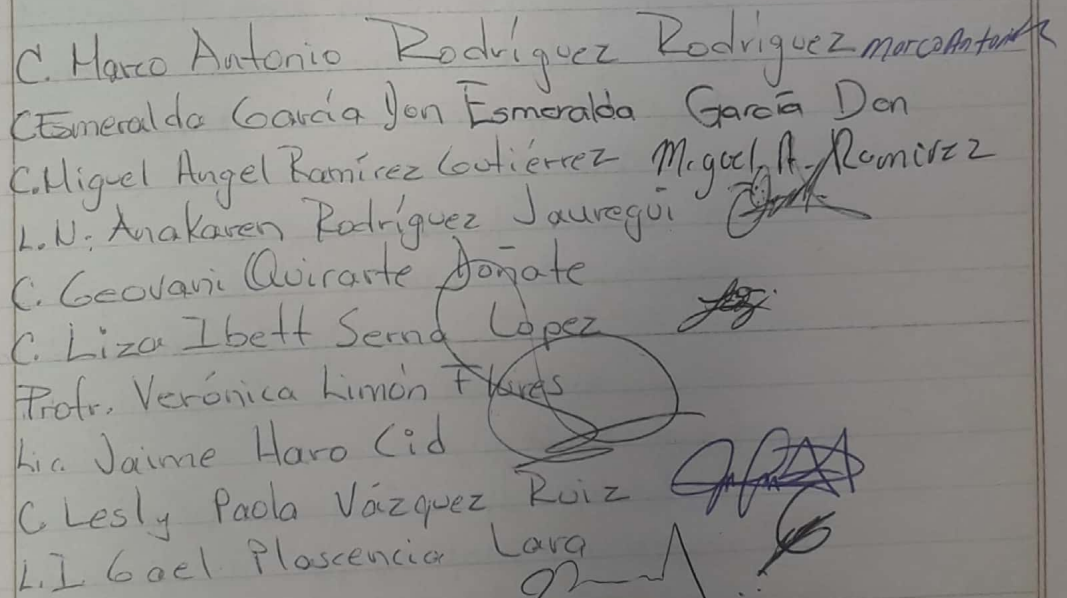 C. Marco Antonio Rodríguez Rodriguez Marco Antonio R
C Esmeralda García Don Esmeralda García Don
C. Miguel Angel Ramírez Gutiérrez Miguel A. Ramirez
L.N. Anakaren Rodríguez Jauregui
C. Geovani Quirarte Doñate
C. Liza Ibett Serna López
Profr. Verónica Limón Flores
Lic Jaime Haro Cid
C. Lesly Paola Vázquez Ruiz
L.I Gael Plascencia Lara